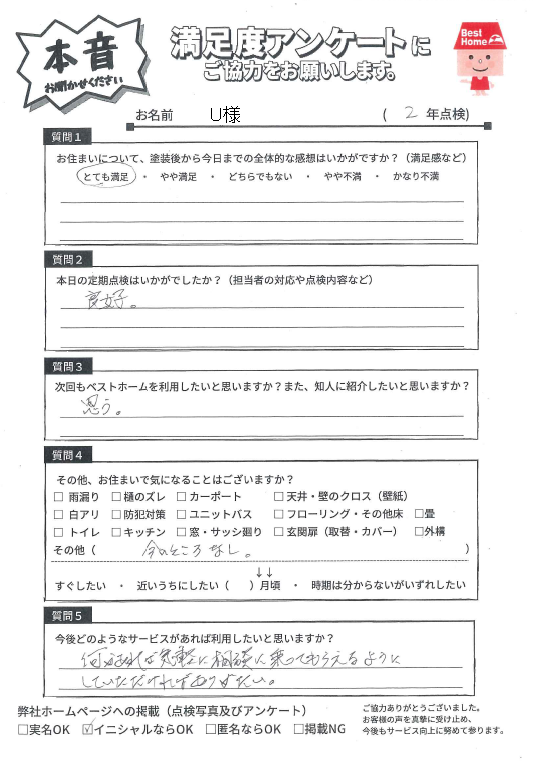 本音
お聞かせください
満足度アンケートに
ご協力をお願いします。
Best Home
お名前 U様 ( 2 年点検)
質問1
お住まいについて、塗装後から今日までの全体的な感想はいかがですか?(満足感など)
とても満足 ・ やや満足 ・ どちらでもない ・ やや不満 ・ かなり不満
質問2
本日の定期点検はいかがでしたか?(担当者の対応や点検内容など)
良好。
質問3
次回もベストホームを利用したいと思いますか?また、知人に紹介したいと思いますか?
思う。
質問4
その他、お住まいで気になることはございますか?
□ 雨漏り □ 樋のズレ □ カーポート □ 天井・壁のクロス(壁紙)
□ 白アリ □ 防犯対策 □ ユニットバス □ フローリング・その他床 □畳
□ トイレ □ キッチン □ 窓・サッシ廻り □ 玄関扉(取替・カバー) □外構
その他( 今のところなし。 )
↓↓
すぐしたい ・ 近いうちにしたい( )月頃 ・ 時期は分からないがいずれしたい
質問5
今後どのようなサービスがあれば利用したいと思いますか?
何かあれば気軽に相談に乗ってもらえるように
していただければありがたい。
弊社ホームページへの掲載(点検写真及びアンケート)
□実名OK ☑イニシャルならOK □匿名ならOK □掲載NG
ご協力ありがとうございました。
お客様の声を真摯に受け止め、
今後もサービス向上に努めて参ります。